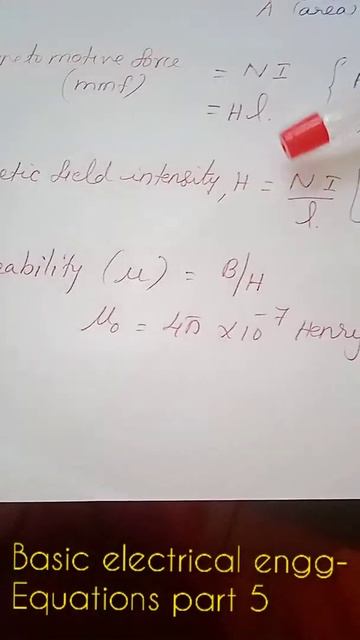 A (area)
netomotive force = NI {
(mmf)
= Hl.
etic field intensity, H = NI/l.
eability (μ) = B/H
μ₀ = 4π × 10⁻⁷ Henry
Basic electrical engg-
Equations part 5